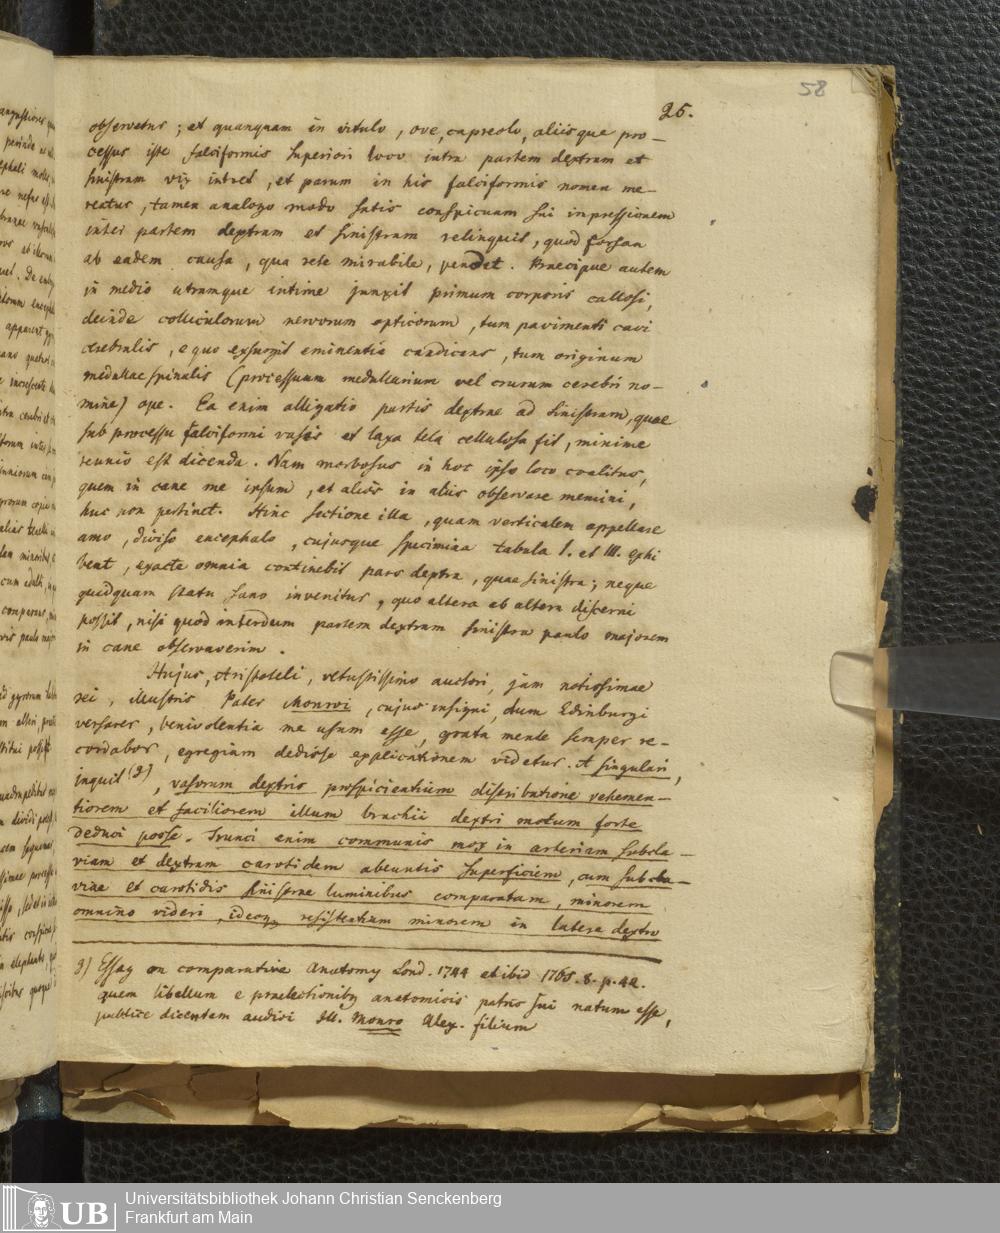 58
25.
observetur ; et quanquam in vitulo , ove, capreolo, aliisque pro-
cessus iste falciformis superiori loco intra partem dextram et
sinistram vix intret , et parum in his falciformis nomen me-
reatur , tamen analogo modo satis conspicuam sui impressionem
inter partem dextram et sinistram relinquit , quod forsan
ab eadem causa , qua rete mirabile, pendet . Praecipue autem
in medio utramque intime junxit primum corporis callosi,
deinde colliculorum nervorum opticorum , tum pavimenti cavi
cerebralis , e quo exsurgit eminentia candicans , tum originum
medullae spinalis (processuum medullarium vel crurum cerebri no-
mine) ope . Ea enim alligatio partis dextrae ad sinistram, quae
sub processu falciformi vasis et laxa tela cellulosa fit, minime
reunio est dicenda . Nam morbosus in hoc ipso loco coalitus,
quem in cane me ipsum , et alios in aliis observare memini,
huc non pertinet . Hinc sectione illa , quam verticalem appellare
amo , diviso encephalo , cujusque specimina tabula I. et III. exhi
bent , exacte omnia continebit pars dextra , quae sinistra ; neque
quidquam statu sano invenitur , quo altera ab altera discerni
possit , nisi quod interdum partem dextram sinistra paulo majorem
in cane observaverim .
Hujus, Aristoteli , vetustissimo auctori , jam notissimae
rei , illustris Pater Monroi , cujus insigni , dum Edinburgi
versarer , benivolentia me usum esse , grata mente semper re-
cordabor , egregiam dedisse explicationem videtur . A singulari,
inquit (g) , vasorum dextris prospicientium distributione vehemen-
tiorem et faciliorem illum brachii dextri motum forte
deduci posse . Trunci enim communis mox in arteriam subcla-
viam et dextram carotidem abeuntis superficiem , cum subcla-
viae et carotidis sinistrae luminibus comparatam , minorem
omnino videri , ideoq resistentiam minorem in latere dextro
g) Essay on comparative Anatomy Lond. 1744 et ibid 1765. 8. p. 42.
quem libellum e praelectionibq anatomicis patris sui natum esse,
publice dicentem audivi Ill. Monro Alex. filium
UB
Universitätsbibliothek Johann Christian Senckenberg
Frankfurt am Main